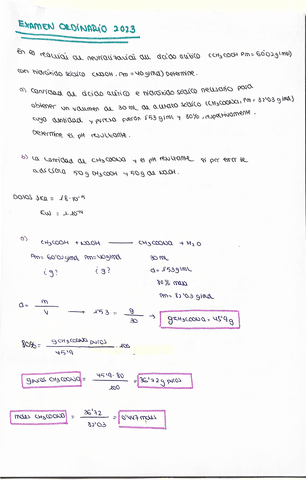 EXAMEN ORDINARIO 2023
En la reacción de neutralización del ácido acético (CH3COOH Pm = 60'02 g/mol)
con hidróxido sódico (NaOH, Pm = 40 g/mol) Determine.
a) Cantidad de ácido acético e hidróxido sódico necesario para
obtener un volumen de 30 mL de acetato sódico (CH3COONa, Pm = 82'03 g/mol)
cuya densidad y pureza fueran 1'53 g/mL y 80%, respectivamente.
Determine el pH resultante.
b) La cantidad de CH3COONa y el pH resultante si por error se
adiciona 50 g CH3COOH y 50 g de NaOH.
Datos: Ka = 1'8·10⁻⁵
Kw = 1·10⁻¹⁴
a) CH3COOH + NaOH → CH3COONa + H2O
Pm = 60'02 g/mol Pm = 40 g/mol 30 mL
¿g? ¿g? d = 1'53 g/mL
80% masa
Pm = 82'03 g/mol
d = m/V → 1'53 = g/30 → gCH3COONa = 45'9 g
80% = gCH3COONa puros/45'9 · 100
g puros CH3COONa = 45'9 · 80/100 = 36'72 g puros
moles CH3COONa = 36'72/82'03 = 0'447 moles